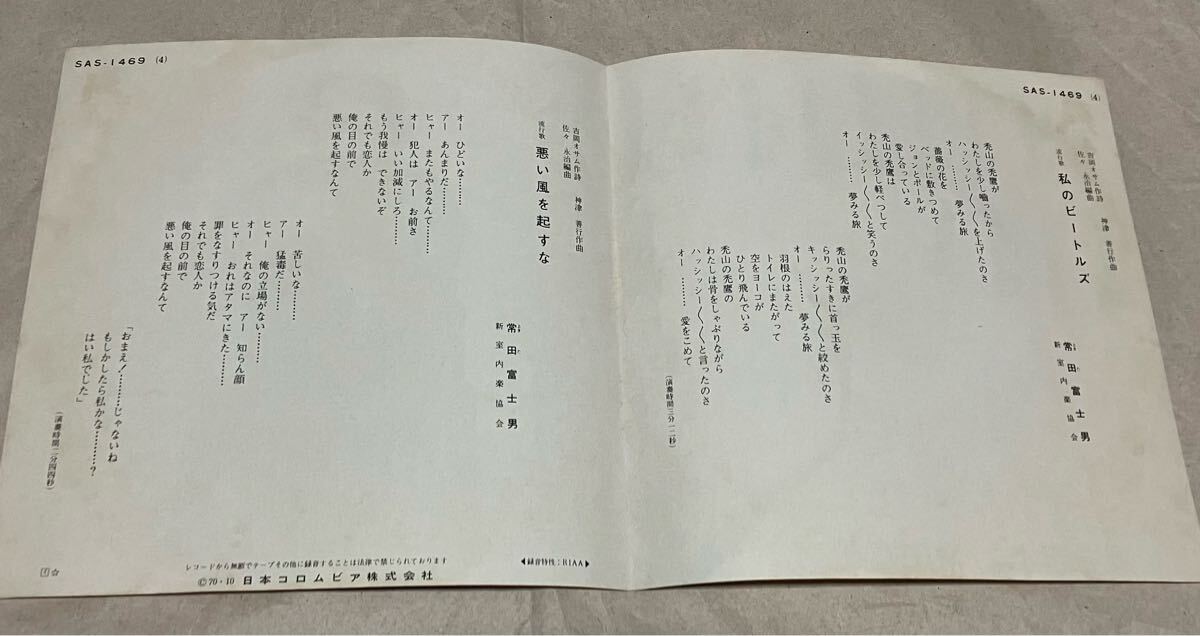 SAS-1469 (4)
吉岡オサム作詩 神津 善行作曲
佐々 永治編曲
流行歌 私のビートルズ
常田富士男
新室内楽協会
禿山の禿鷹が
わたしを少し嚙ったから
ハッシッシー〱〱を上げたのさ
オー……… 夢みる旅
薔薇の花を
ベッドに敷きつめて
ジョンとポールが
愛し合っている
禿山の禿鷹は
わたしを少し軽べつして
イッシッシー〱〱と笑うのさ
オー ……… 夢みる旅
禿山の禿鷹が
らりったすきに首っ玉を
キッシッシー〱〱と絞めたのさ
オー ……… 夢みる旅
羽根のはえた
トイレにまたがって
空をヨーコが
ひとり飛んでいる
禿山の禿鷹の
わたしは骨をしゃぶりながら
ハッシッシー〱〱と言ったのさ
オー ……… 愛をこめて
(演奏時間三分一二秒)
SAS-1469 (4)
吉岡オサム作詩 神津 善行作曲
佐々 永治編曲
流行歌 悪い風を起すな
常田富士男
新室内楽協会
オー ひどいな………
アー あんまりだ………
ヒャー またもやるなんて………
オー 犯人は アー お前さ
ヒャー いい加減にしろ………
もう我慢は できないぞ
それでも恋人か
俺の目の前で
悪い風を起すなんて
オー 苦しいな………
アー 猛毒だ………
ヒャー 俺の立場がない………
オー それなのに アー 知らん顔
ヒャー おれはアタマにきた………
罪をなすりつける気だ
それでも恋人か
俺の目の前で
悪い風を起すなんて
「おまえ!………じゃないね
もしかしたら私かな………?
はい私でした」
(演奏時間二分四四秒)
レコードから無断でテープその他に録音することは法律で禁じられております
◀録音特性:RIAA▶
Ⓒ70・10 日本コロムビア株式会社